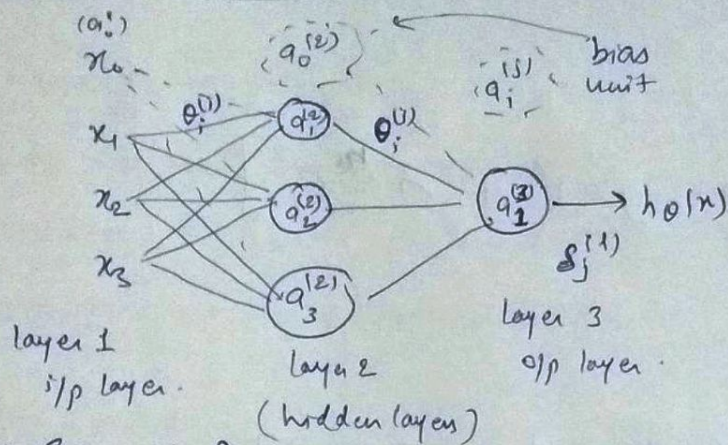 (a₀¹)
x₀
a₀⁽²⁾
bias
unit
aᵢ⁽ʲ⁾
θᵢ⁽ʲ⁾
a₁⁽²⁾
θⱼ⁽ⁱ⁾
x₁
x₂
a₂⁽²⁾
a₁⁽³⁾
hθ(x)
x₃
a₃⁽²⁾
δⱼ⁽ˡ⁾
layer 1
i/p layer.
layer 2
(hidden layers)
layer 3
o/p layer.